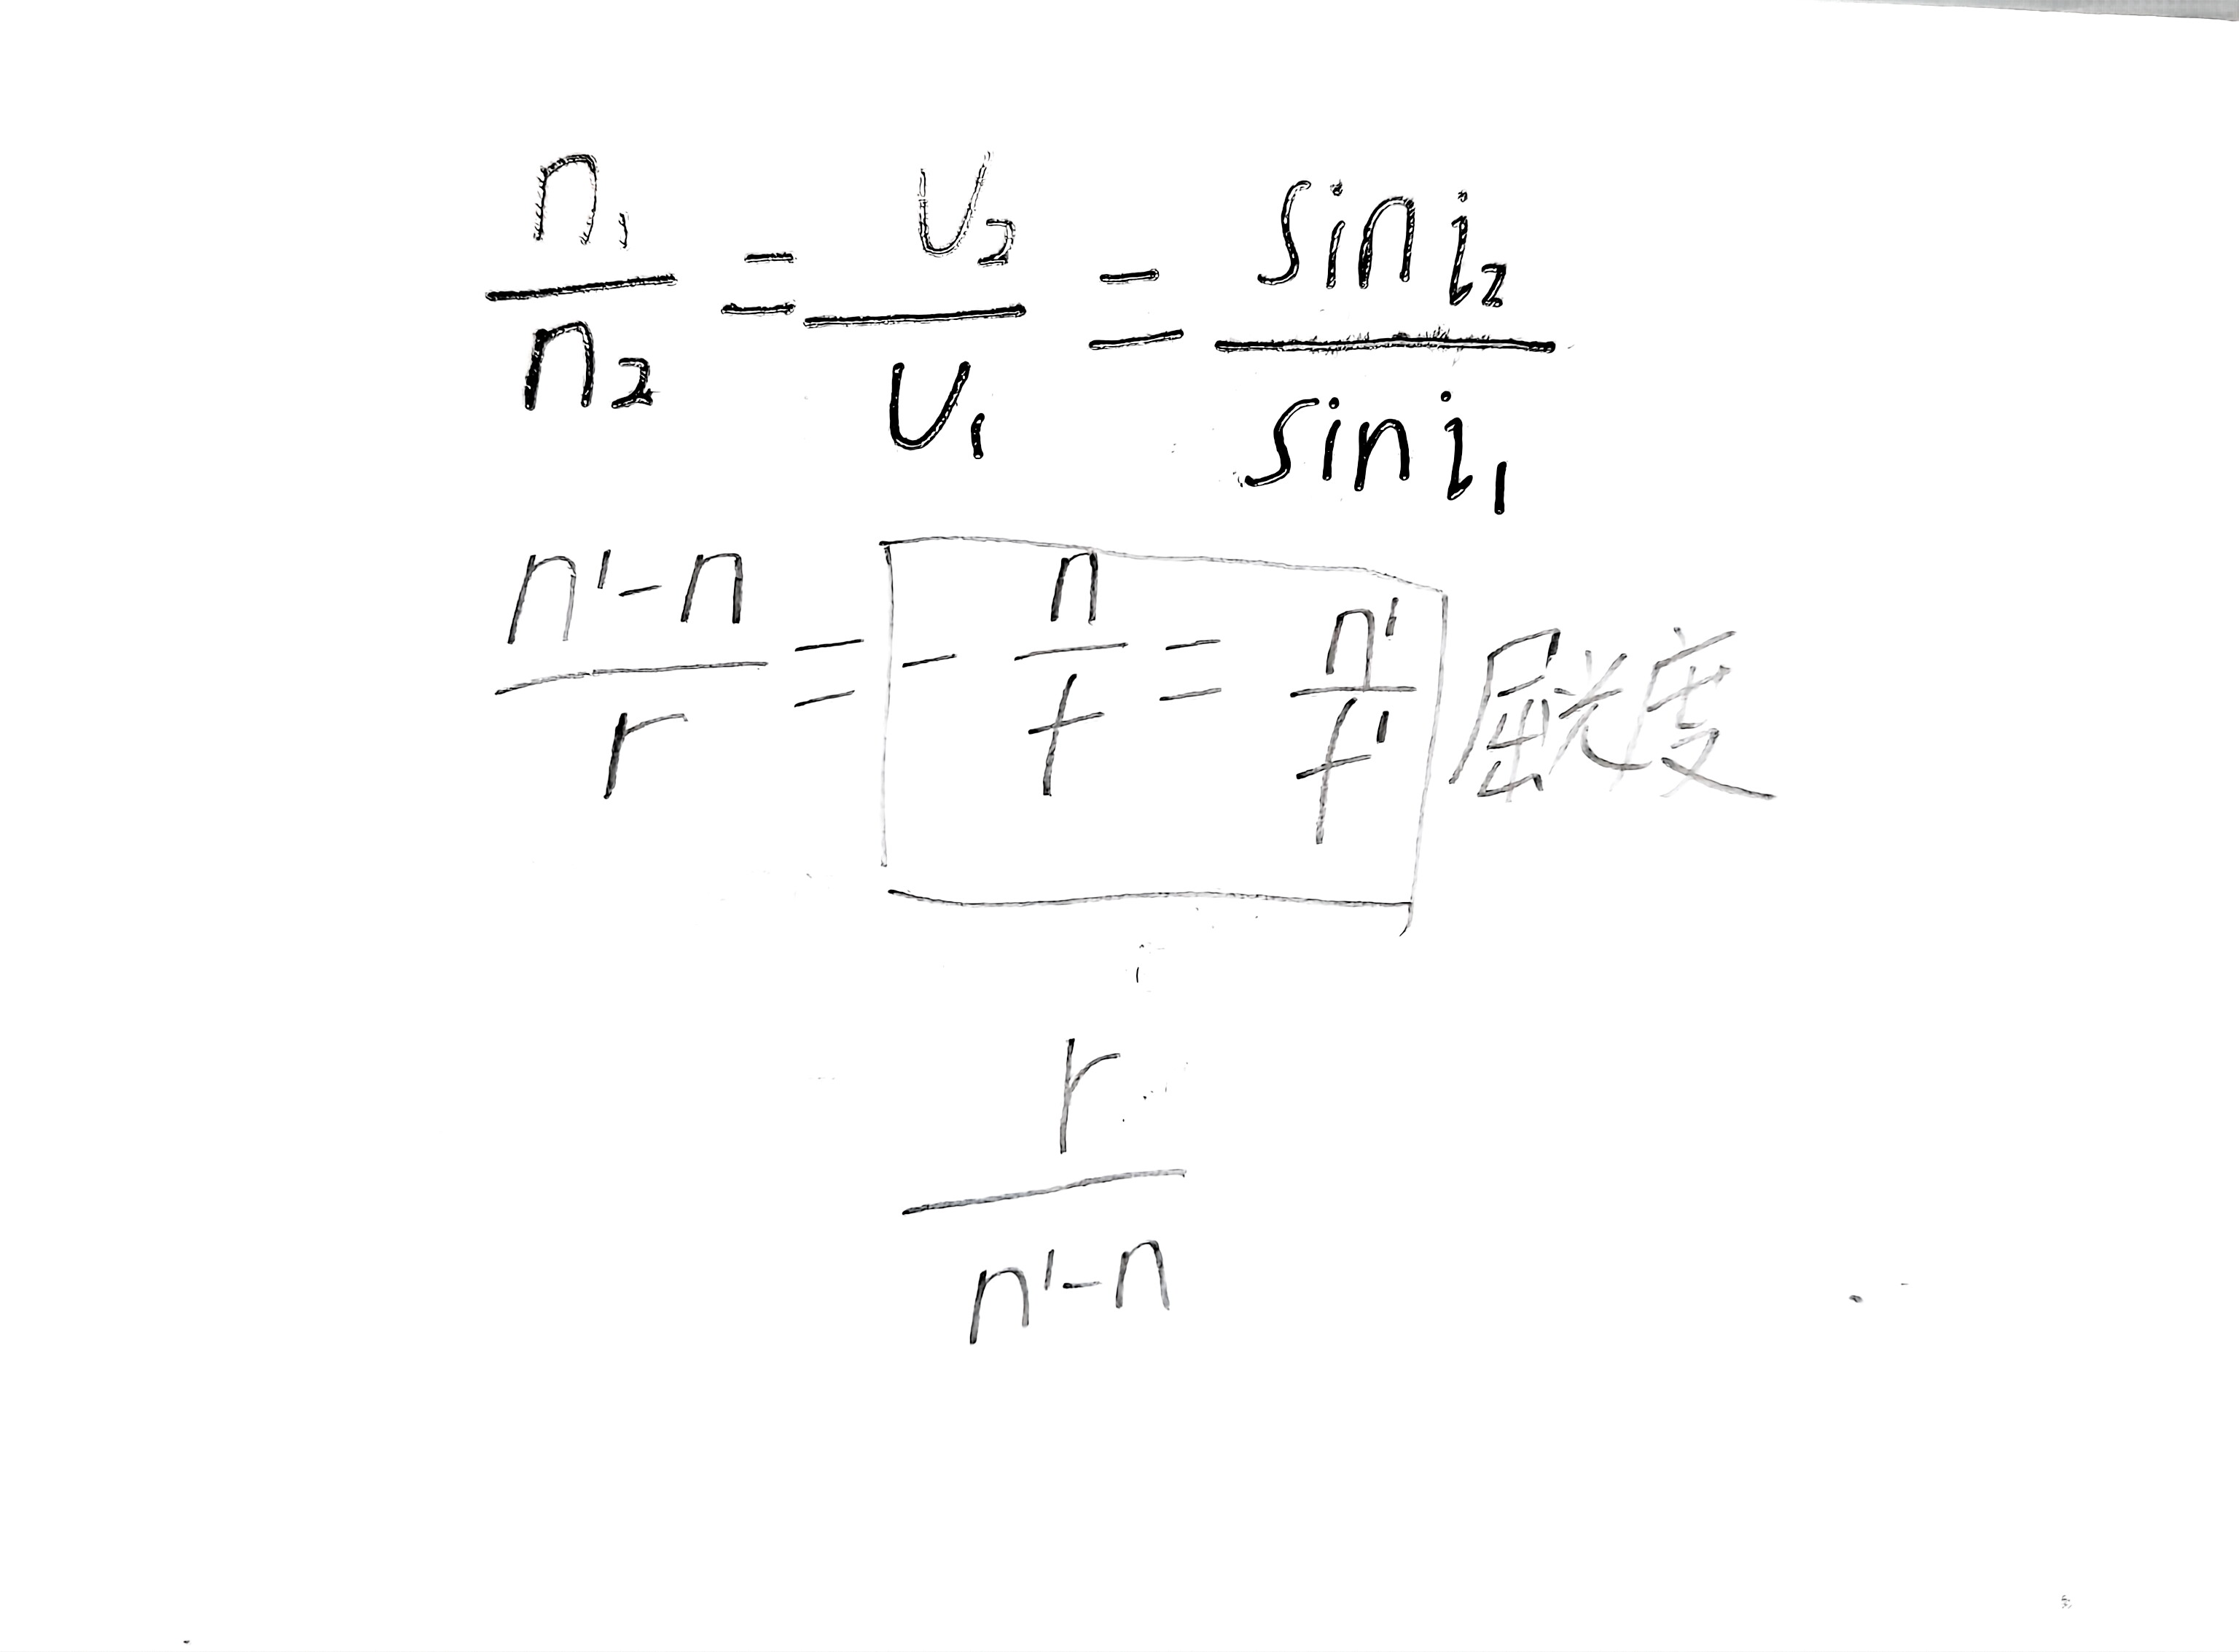 n₁/n₂ = υ₂/υ₁ = sin i₂/sin i₁
(n'-n)/r = -n/f = n'/f' 屈光度
r/(n'-n)